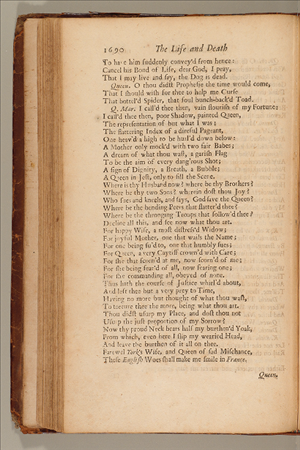 1690 The Life and Death
To have him suddenly convey'd from hence:
Cancel his Bond of Life, dear God, I pray,
That I may live and say, the Dog is dead.
Queen. O thou didst Prophesie the time would come,
That I should wish for thee to help me Curse
That bottel'd Spider, that foul bunch-back'd Toad.
Q. Mar. I call'd thee then, vain flourish of my Fortune:
I call'd thee then, poor Shadow, painted Queen,
The representation of but what I was;
The flattering Index of a direful Pageant,
One heav'd a high to be hurl'd down below:
A Mother only mock'd with two fair Babes;
A dream of what thou wast, a garish Flag
To be the aim of every dang'rous Shot;
A sign of Dignity, a Breath, a Bubble;
A Queen in Jest, only to fill the Scene.
Where is thy Husband now? where be thy Brothers?
Where be thy two Sons? wherein dost thou Joy?
Who sues and kneels, and says, God save the Queen?
Where be the bending Peers that flatter'd thee?
Where be the thronging Troops that follow'd thee?
Decline all this, and see now what thou art.
For happy Wife, a most distress'd Widow;
For joyful Mother, one that wails the Name;
For one being su'd to, one that humbly sues;
For Queen, a very Caytiff crown'd with Care;
For she that scorn'd at me, now scorn'd of me;
For she being fear'd of all, now fearing one;
For she commanding all, obeyed of none.
Thus hath the course of Justice whirl'd about,
And left thee but a very prey to Time,
Having no more but thought of what thou wast,
To torture thee the more, being what thou art.
Thou didst usurp my Place, and dost thou not
Usurp the just proportion of my Sorrow?
Now thy proud Neck bears half my burthen'd Yoak,
From which, even here I slip my wearied Head,
And leave the burthen of it all on thee.
Farewel York's Wife, and Queen of sad Mischance,
These English Woes shall make me smile in France.
Queen,